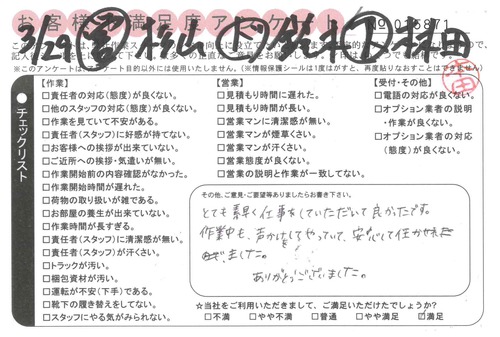 お客様満足度アンケート No 015871
3/29 杉山 下 鈴木 下 林田
※このアンケートは、アンケート目的以外には使用いたしません。(※情報保護シールは1度がはずすと、再度貼りなおすことはできません)
チェックリスト
【作業】
□責任者の対応(態度)が良くない。
□他のスタッフの対応(態度)が良くない。
□作業を見ていて不安がある。
□責任者(スタッフ)に好感が持てない。
□お客様への挨拶が出来ていない。
□ご近所への挨拶・気遣いが無い。
□作業開始前の内容確認がなかった。
□作業開始時間が遅れた。
□荷物の取り扱いが雑である。
□お部屋の養生が出来ていない。
□作業時間が長すぎる。
□責任者(スタッフ)に清潔感が無い。
□責任者(スタッフ)が汗くさい。
□トラックが汚い。
□梱包資材が汚い。
□運転が不安(下手)である。
□靴下の履き替えをしてない。
□スタッフにやる気がみられない。
【営業】
□見積もり時間に遅れた。
□見積もり時間が長い。
□営業マンに清潔感が無い。
□営業マンが煙草くさい。
□営業マンが汗くさい。
□営業態度が良くない。
□営業の説明と作業が一致してない。
【受付・その他】
□電話の対応が良くない。
□オプション業者の説明
・作業が良くない。
□オプション業者の対応
(態度)が良くない。
その他、ご意見・ご要望等ありましたらお書き下さい。
とても素早く仕事をしていただいて良かったです。
作業中も、声かけをしてやっていて、安心して任かせれた
ました。
ありがとうございました。
☆当社をご利用いただきまして、ご満足いただけたでしょうか?
□不満 □やや不満 □普通 □やや満足 □満足